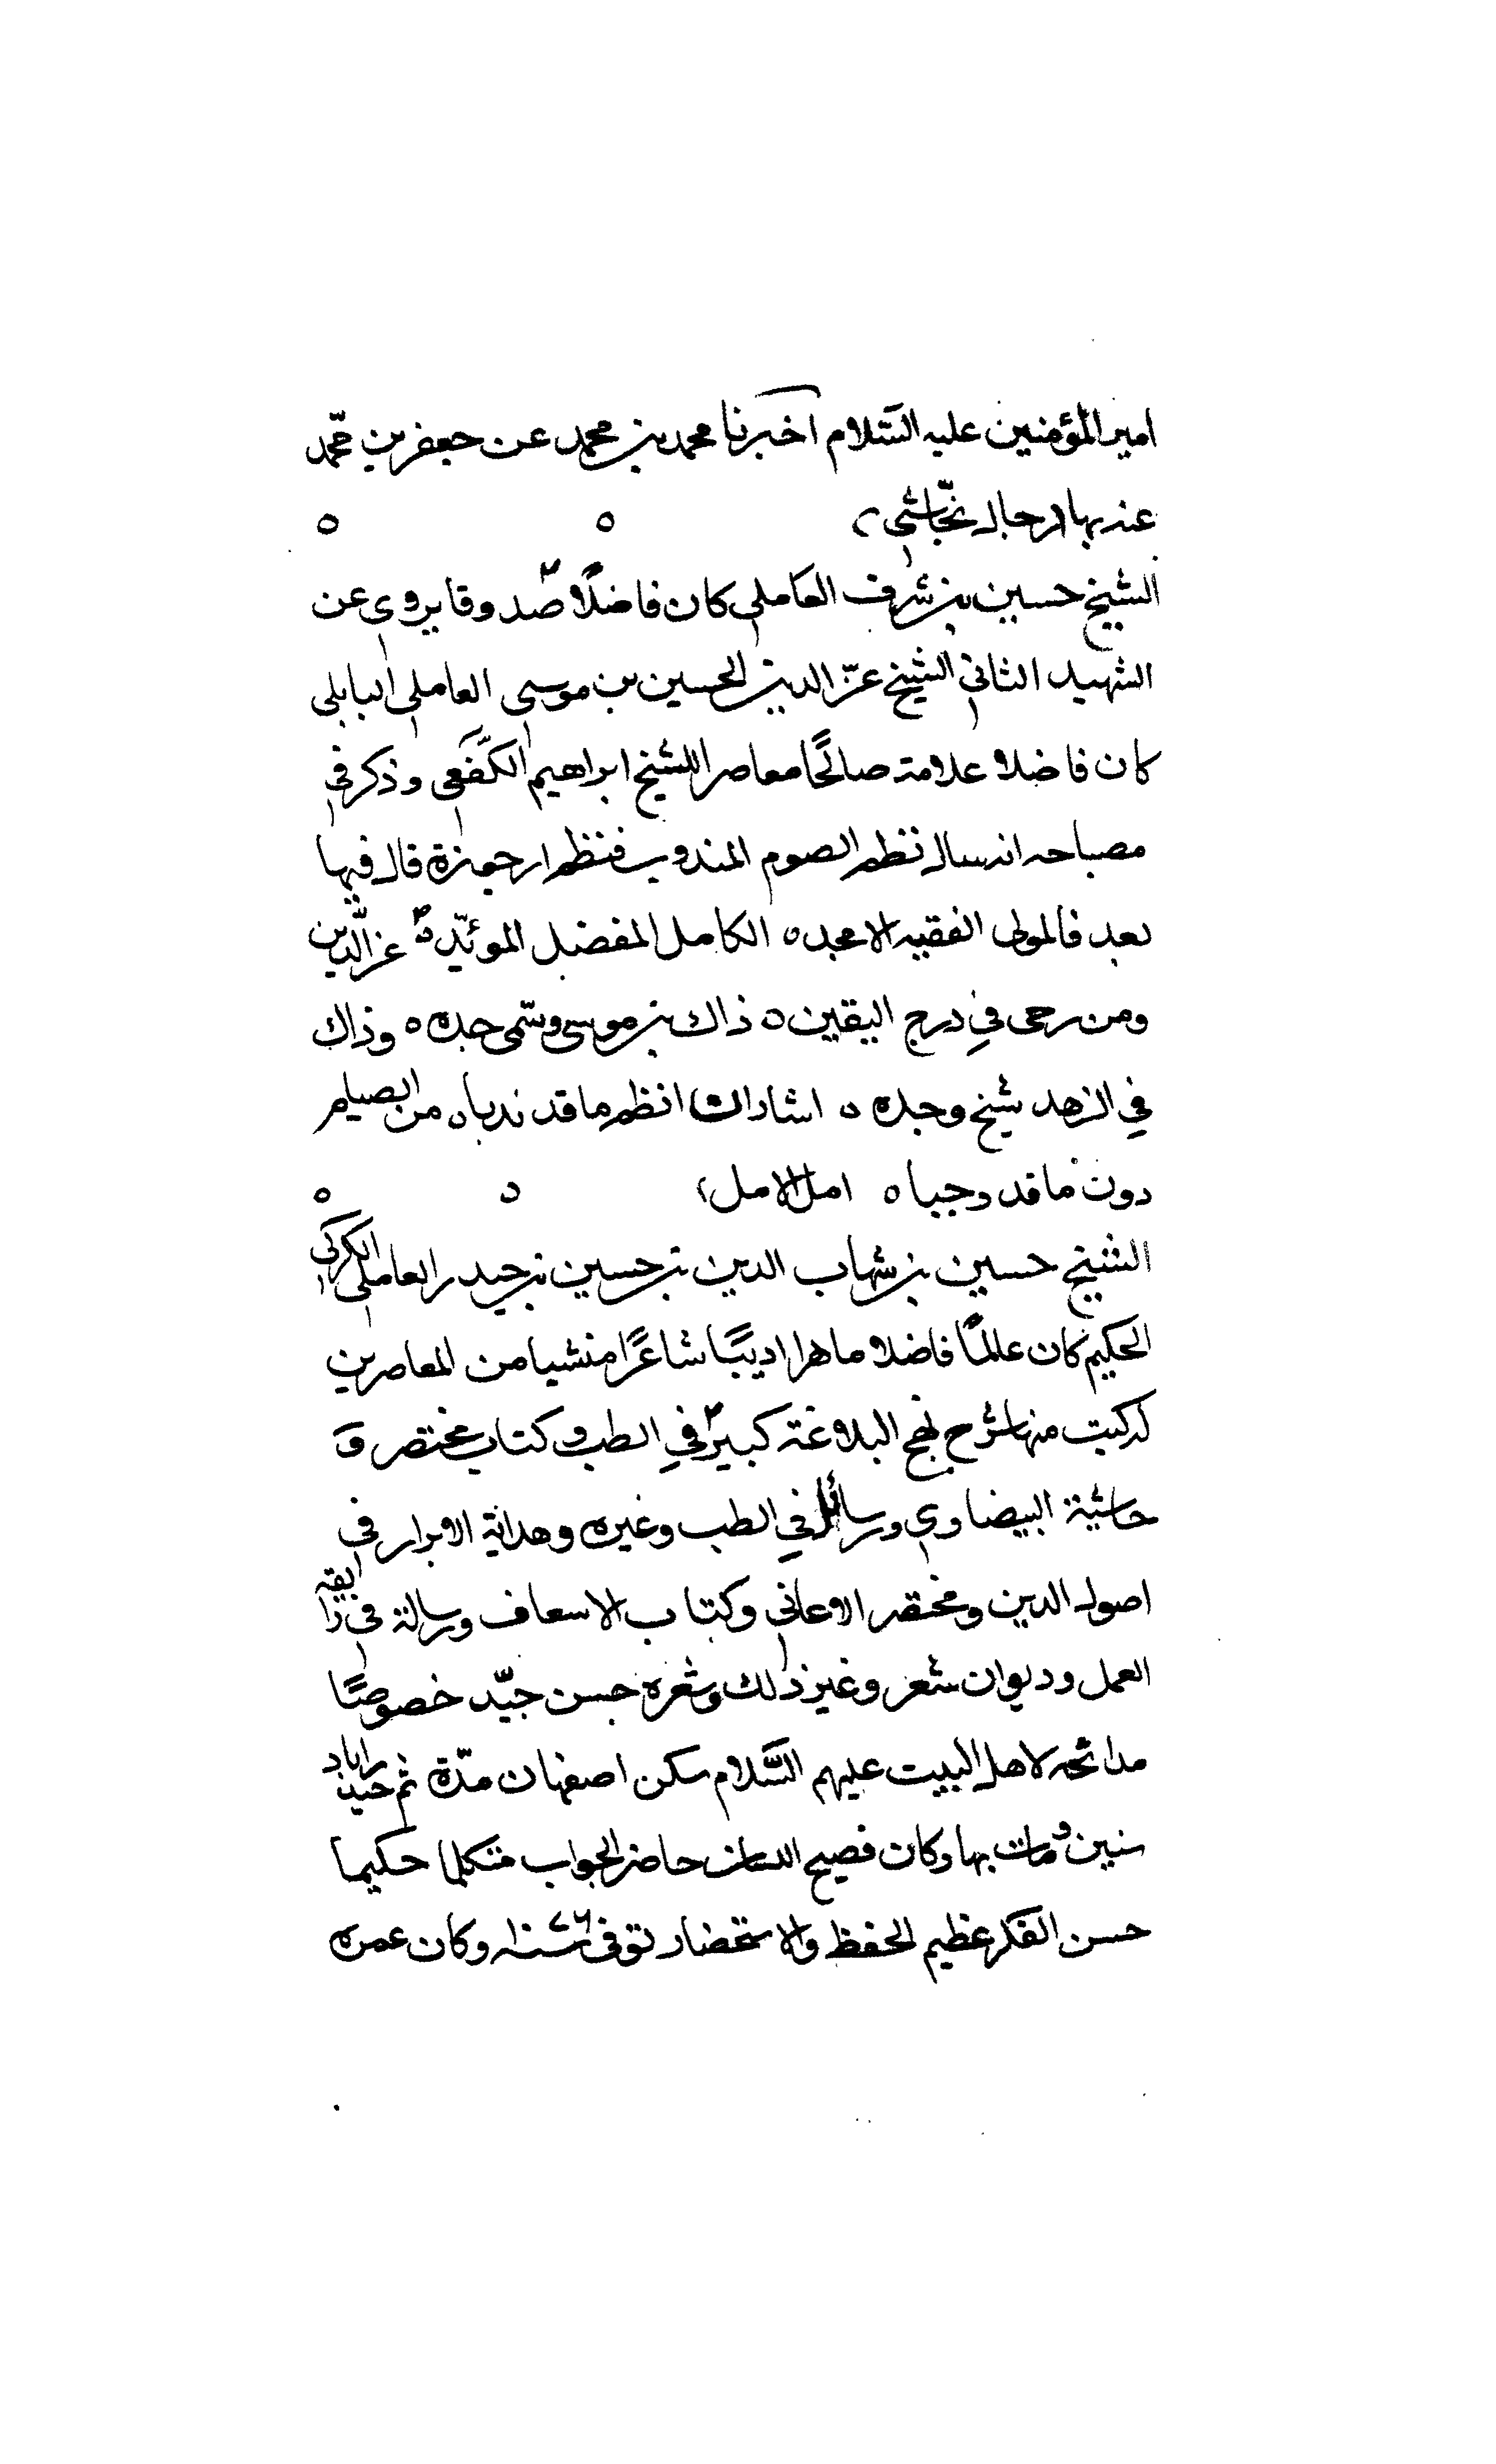 امير المؤمنين عليه السّلام اخبرنا محمد بن محمد عن جعفر بن محمّد
عنه بها رجال نجّاشى
الشيخ حسين بن شرف العاملى كان فاضلًا صدوقا يروى عن
الشهيد الثانى الشيخ عزّ الدين الحسين بن موسى العاملى البابلى
كان فاضلا علامة صالحًا معاصرا للشيخ ابراهيم الكفعمى وذكر فى
مصباحه انه سال نظم الصوم المندوب فنظم ارجوزة قال فيها
بعد فالمولى الفقيه الامجد ه الكامل المفضل الموئيّد ه عز الدّين
ومن رحى في درج اليقين ه ذاك بن موسى وسمّى جده ه وذاك
في الزهد شيخ وحده ه اشار ان انظم ما قد ندبا ه من الصيام
دون ما قد وجبا ه امل الامل
الشيخ حسين بن شهاب الدين بن حسين بن حيدر العاملى الكركى
الحكيم كان عالمًا فاضلا ماهرا اديبًا شاعرًا منشيا من المعاصرين
له كتب منها شرح نهج البلاغة كبير في الطب وكتاب مختصر و
حاشية البيضاوى ورسائل في الطب وغيره وهداية الابرار فى
اصول الدين ومختصر الاغانى وكتاب الاسعاف ورسالة فى
العمل وديوان شعر وغير ذلك وشعره حسن جيّد خصوصًا
مدائحه لاهل البيت عليهم السّلام سكن اصفهان مدّة ثم حيدراباد
سنين ومات بها وكان فصيح اللسان حاضر الجواب متكلما حكيما
حسن الفكر عظيم الحفظ والاستحضار توفى وكان عمره